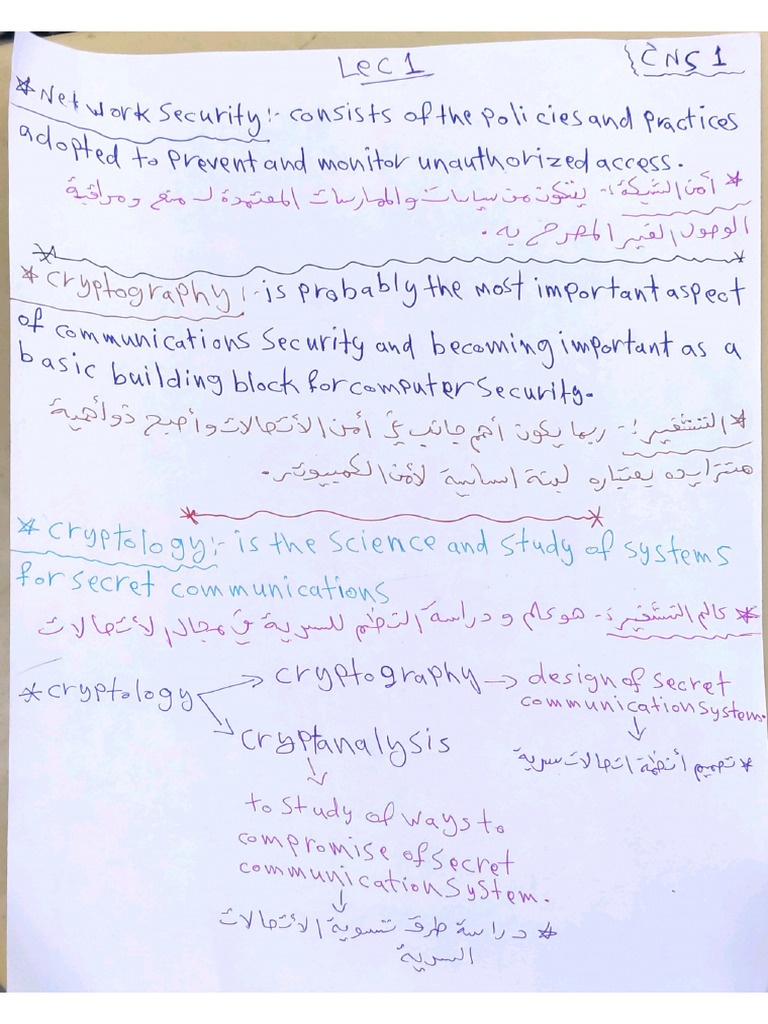 Lec 1
CNS 1
* Network Security:- consists of the policies and practices
adopted to prevent and monitor unauthorized access.
* أمن الشبكة:- يتكون من سياسات والممارسات المعتمدة لـ منع ومراقبة
الوصول الغير المصرح به.
* cryptography:- is probably the most important aspect
of communications Security and becoming important as a
basic building block for computer Security.
* التشفير:- ربما يكون أهم جانب في أمن الأتصالات وأصبح ذو أهمية
متزايده بعتباره لبنة اساسية لأمن الكمبيوتر.
* cryptology:- is the Science and Study of systems
for secret communications
* عالم التشفير:- هو علم ودراسة النظم للسرية في مجال الأتصالات
* cryptology → cryptography → design of secret
communication system.
* تصميم أنظمة اتصالات سرية
cryptanalysis
to study of ways to
compromise of secret
communication system.
* دراسة طرق تسوية الأتصالات
السرية